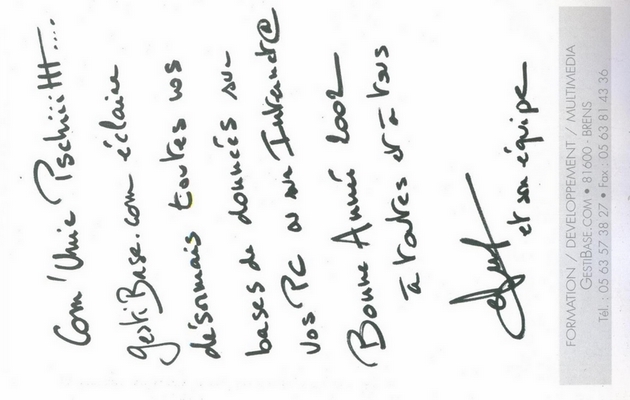 Com'Unic Pschiiittt....
gestiBase.com éclaire
désormais toutes vos
bases de données sur
vos PC ou sur Intranet@
Bonne Année 2002
à toutes et à tous
et son équipe
FORMATION / DEVELOPPEMENT / MULTIMEDIA
GESTIBASE.COM • 81600 - BRENS
Tél. : 05 63 57 38 27 • Fax : 05 63 81 43 36